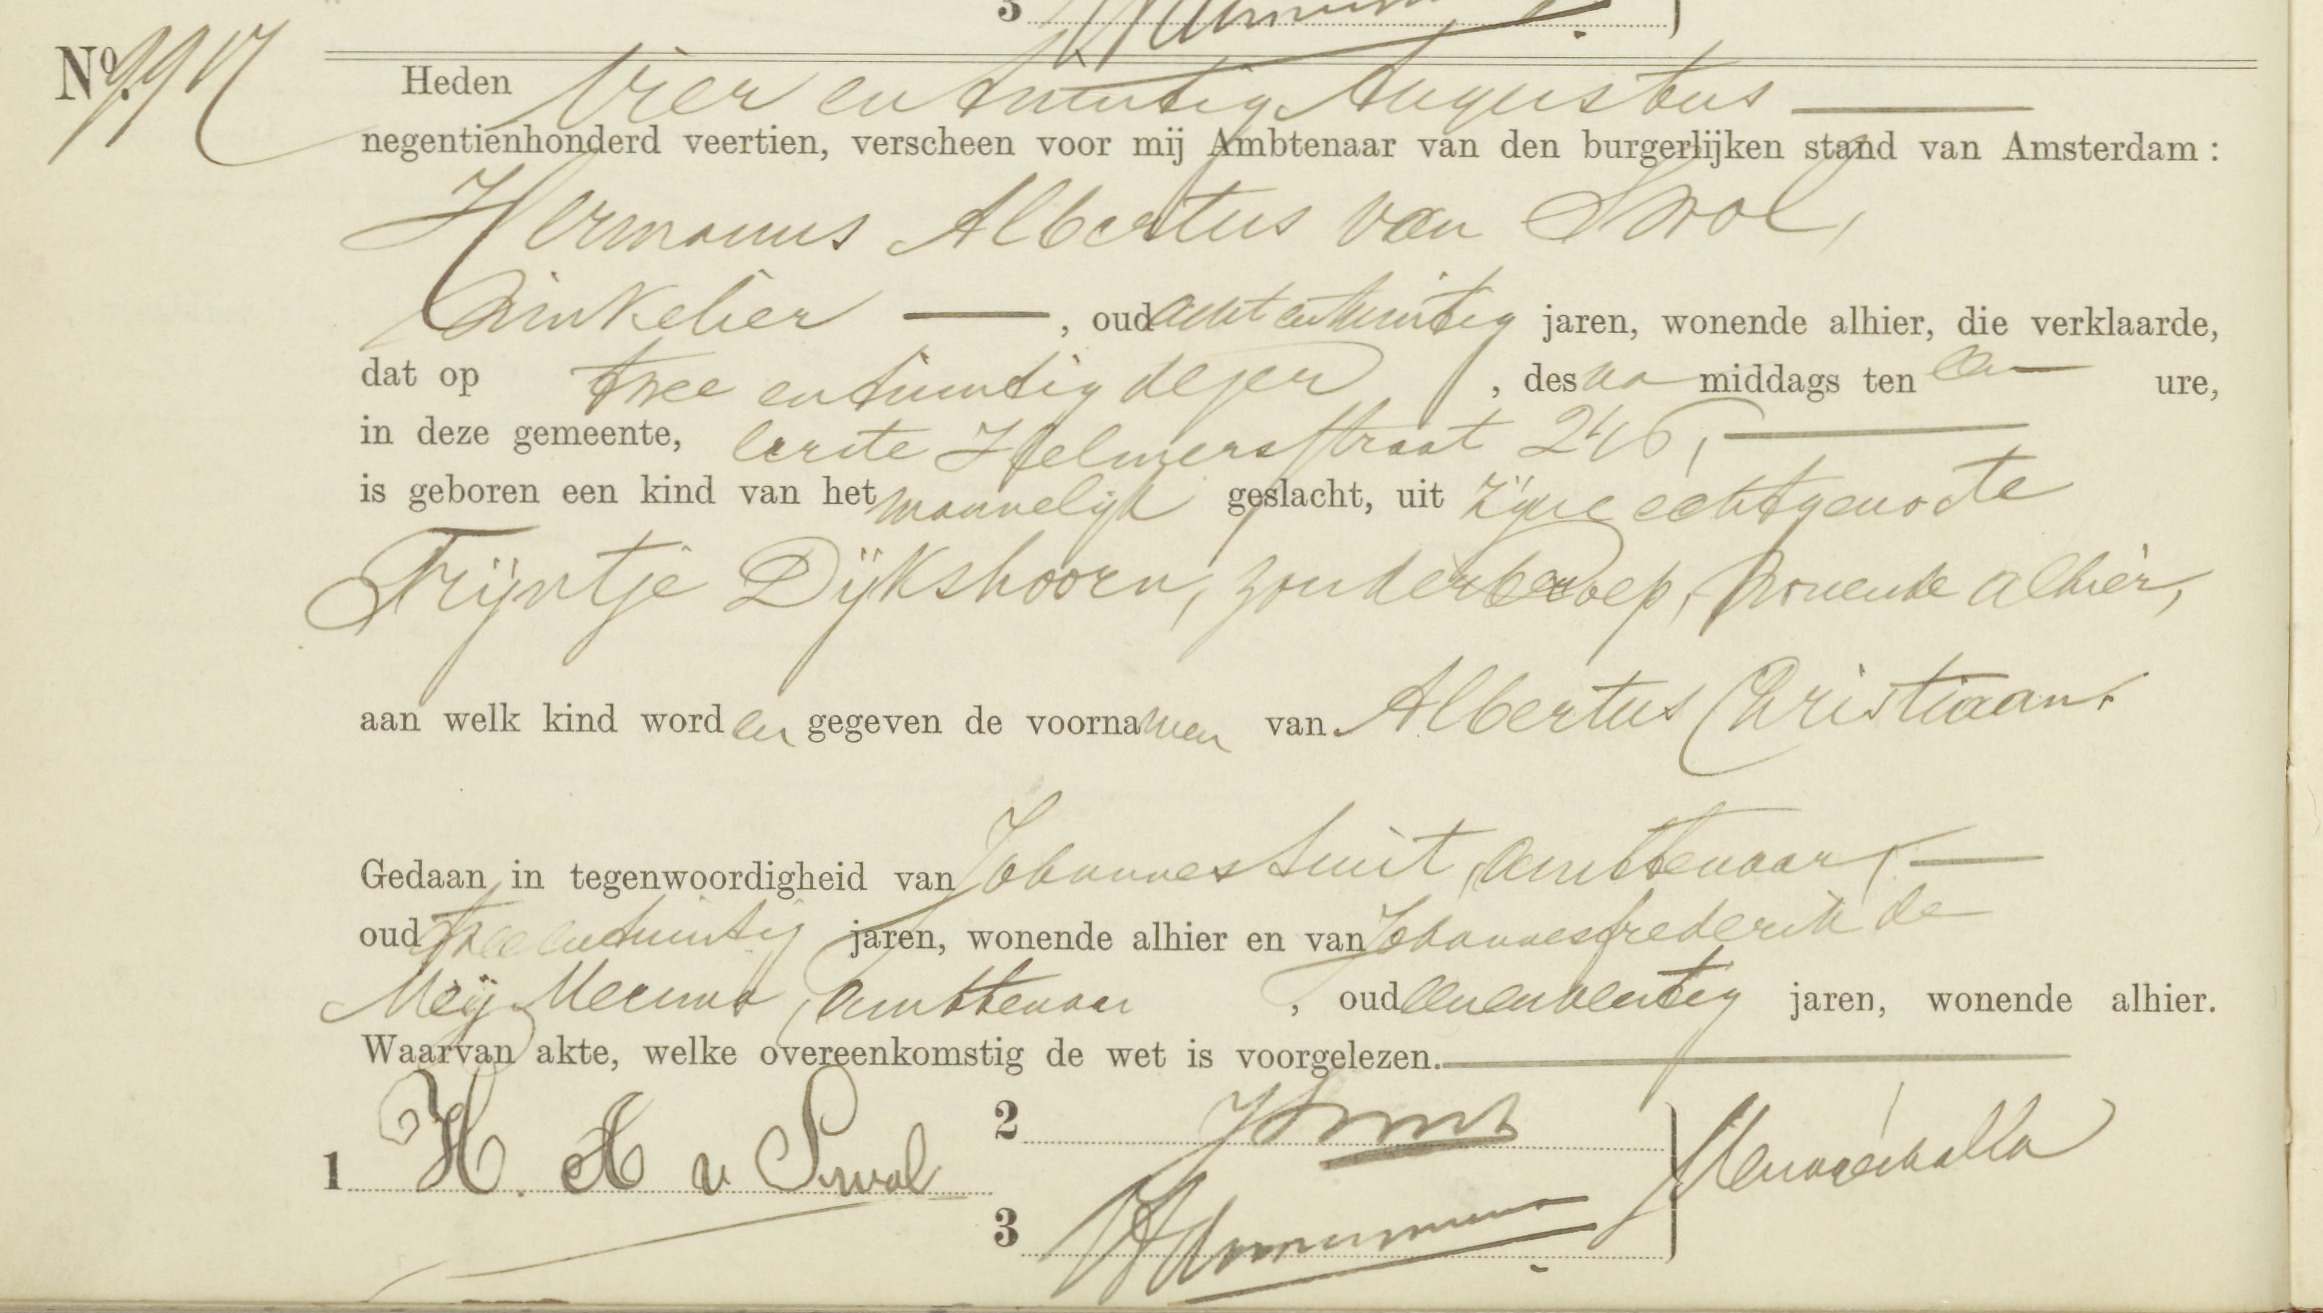 3
No. 9917
Heden Vier en twintig Augustus
negentienhonderd veertien, verscheen voor mij Ambtenaar van den burgerlijken stand van Amsterdam :
Hermanus Albertus van Swol,
Winkelier, oud acht en twintig jaren, wonende alhier, die verklaarde,
dat op twee en twintig dezer, des na middags ten een ure,
in deze gemeente, Eerste Helmersstraat 246,
is geboren een kind van het mannelijk geslacht, uit zijne echtgenoote
Trijntje Dijkshoorn, zonder beroep, wonende alhier,
aan welk kind worden gegeven de voornamen van Albertus Christiaan.
Gedaan in tegenwoordigheid van Johannes Smit, ambtenaar,
oud twee en twintig jaren, wonende alhier en van Johannes Frederik de
Meij Mecima, ambtenaar, oud een en veertig jaren, wonende alhier.
Waarvan akte, welke overeenkomstig de wet is voorgelezen.
1 H. A v Swol
2 J Smit
3